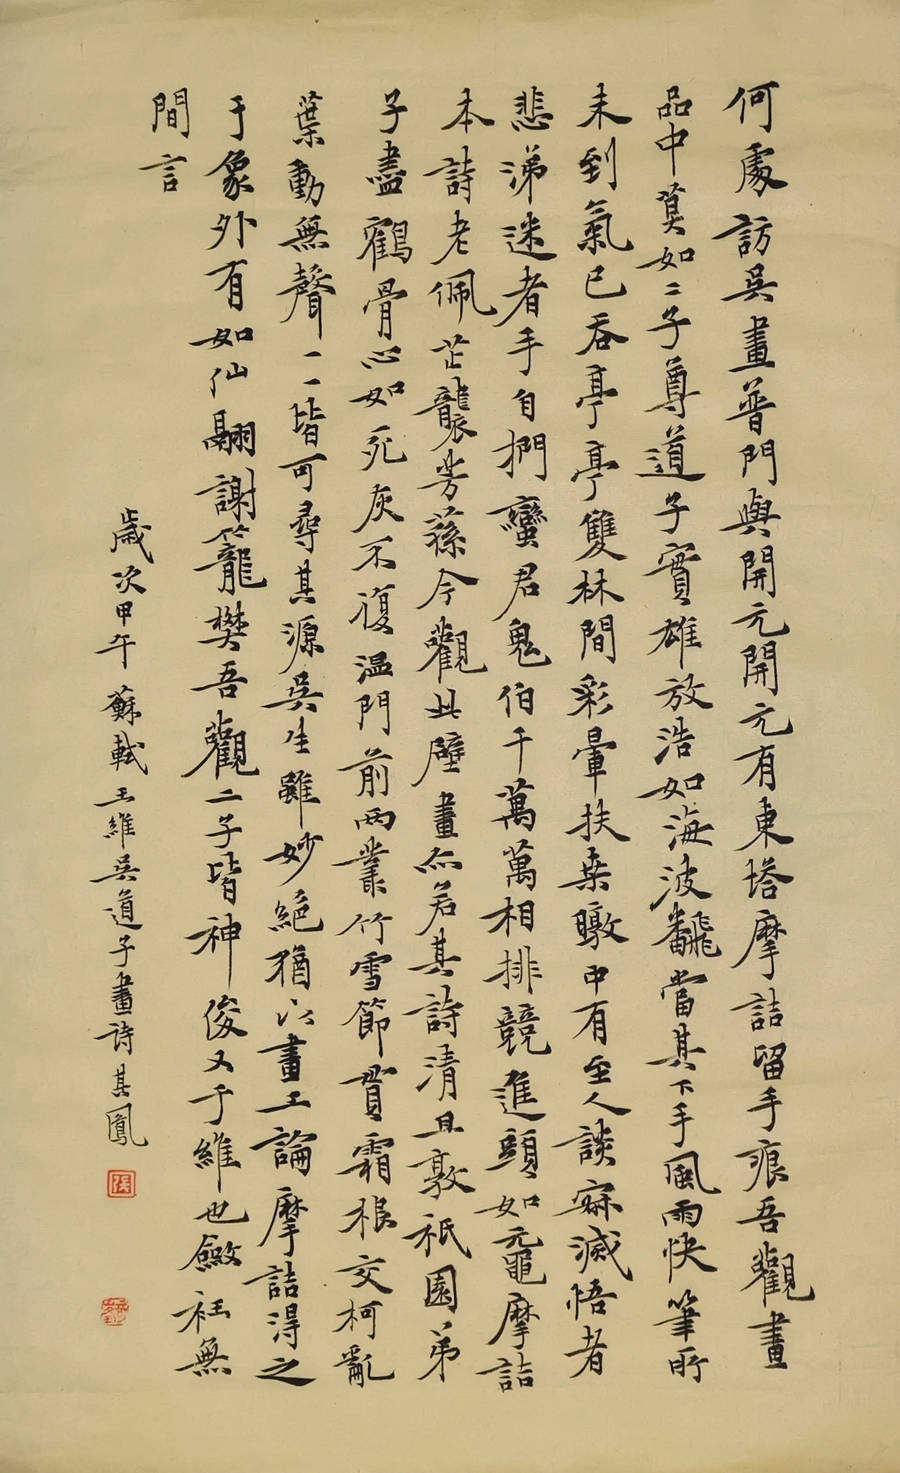 何處訪吳畫普門與開元開元有東塔摩詰留手痕吾觀畫
品中莫如二子尊道子實雄放浩如海波飜當其下手風雨快筆所
未到氣已吞亭亭雙林間彩暈扶桑暾中有至人談寂滅悟者
悲涕迷者手自捫蠻君鬼伯千萬萬相排競進頭如黿摩詰
本詩老佩芷襲芳蓀今觀此壁畫亦若其詩清且敦祇園弟
子盡鶴骨心如死灰不復温門前兩叢竹雪節貫霜根交柯亂
葉動無聲一一皆可尋其源吳生雖妙絕猶以畫工論摩詰得之
于象外有如仙翮謝籠樊吾觀二子皆神俊又于維也斂衽無
間言
歲次甲午 蘇軾王維吳道子畫詩其鳳
張